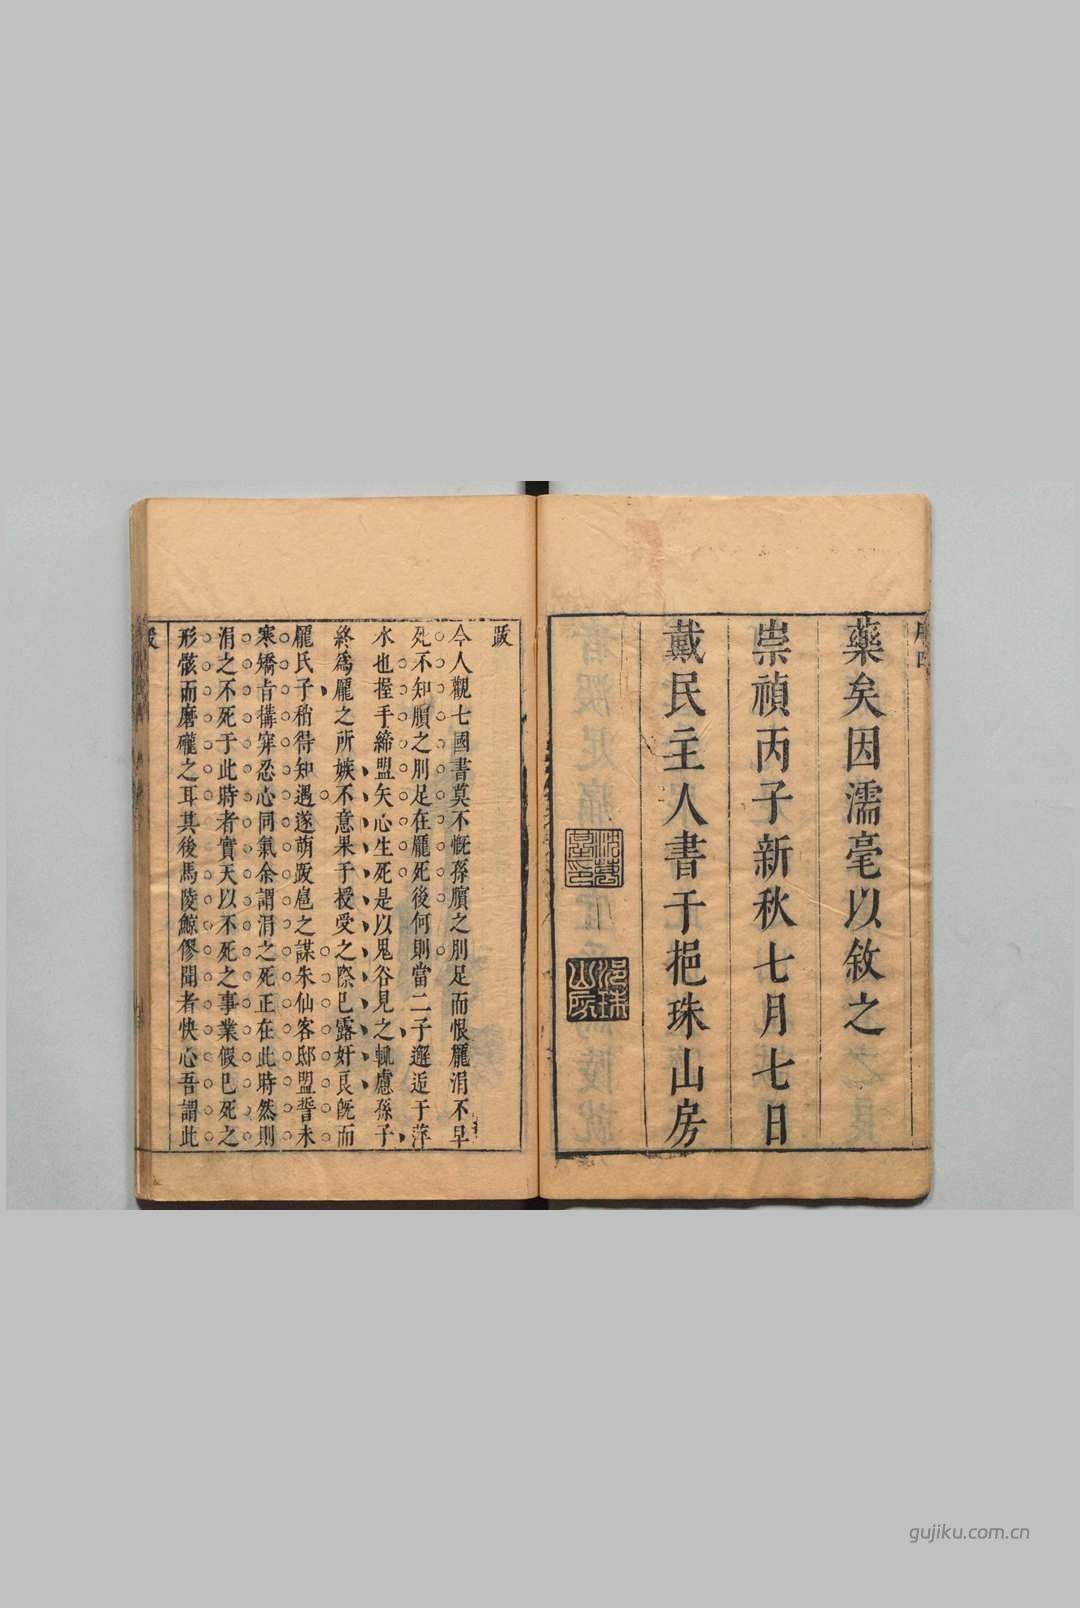 藥矣因濡毫以敘之
崇禎丙子新秋七月七日
戴民主人書于挹珠山房
跋
今人觀七國書莫不慨孫臏之刖足而恨龐涓不早
死不知臏之刖足在龐死後何則當二子邂逅于萍
水也握手締盟矢心生死是以鬼谷見之軏慮孫子
終為龐之所嫉不意果于授受之際已露奸良旣而
龐氏子稍得知遇遂萌跋扈之謀朱仙客邸盟誓未
寒矯旨搆穽忍心同氣余謂涓之死正在此時然則
涓之不死于此時者實天以不死之事業假已死之
形骸而磨礲之耳其後馬陵鯨僇聞者快心吾謂此
gujiku.com.cn